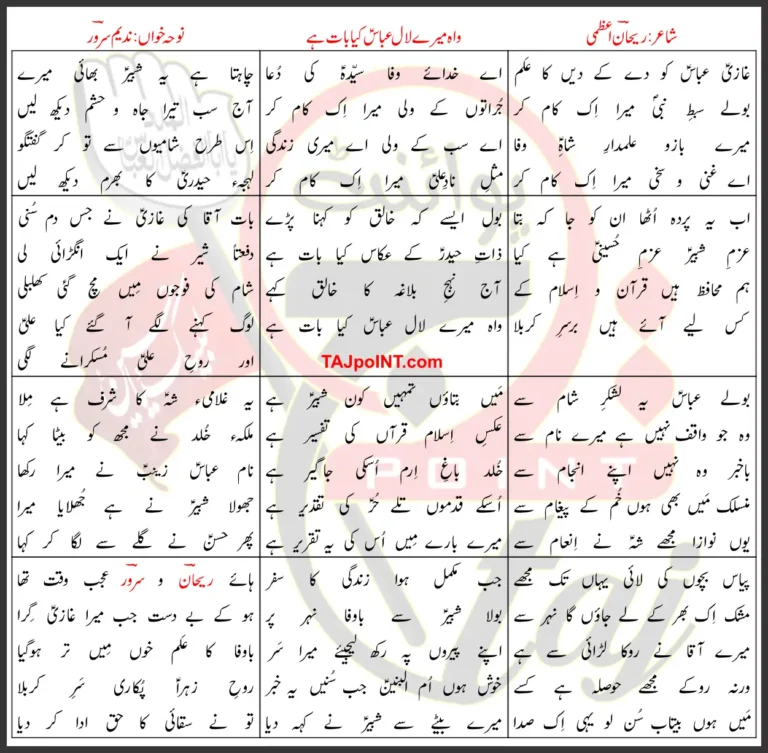 شاعر: ریحان اعظمی
واہ میرے لال عباسؑ کیا بات ہے
نوحہ خواں: ندیم سرور
غازیؑ عباسؑ کو دے کے دیں کا عَلَم
بولے سبطِ نبیؐ میرا اِک کام کر
میرے بازو علمدارِ شاہِؑ وفا
اے غنی و سخی میرا اِک کام کر
اے خدائے وفا سیّدہؑ کی دُعا
جُراتوں کے ولی میرا اِک کام کر
اے سب کے ولی اے میری زندگی
مثلِ نادِعلیؑ میرا اِک کام کر
چاہتا ہے یہ شبیرؑ بھائی میرے
آج سب تیرا جاہ و حشم دیکھ لیں
اِس طرح شامیوں سے تو کر گفتگو
لہجہء حیدریؑ کا بھرم دیکھ لیں
اب یہ پردہ اُٹھا ان کو جا کہ بتا
عزمِ شبیرؑ عزمِ حُسینیؑ ہے کیا
ہم محافظ ہیں قرآن و اِسلام کے
کس لیے آئے ہیں برسرِ کربلا
بول ایسے کہ خالق کو کہنا پڑے
ذاتِ حیدرؑ کے عکاس کیا بات ہے
آج نہجِ بلاغہ کا خالق کہے
واہ میرے لال عباسؑ کیا بات ہے
بات آقا کی غازیؑ نے جس دم سُنی
دفعتاً شیر نے ایک انگڑائی لی
شام کی فوجوں میں مچ گئی کھلبلی
لوگ کہنے لگے آ گئے کیا علیؑ
اور روحِ علیؑ مُسکرانے لگی
TAJpoINT.com
بولے عباسؑ یہ لشکرِ شام سے
وہ جو واقف نہیں ہے میرے نام سے
باخبر وہ نہیں اپنے انجام سے
منسلک مَیں بھی ہوں خُم کے پیغام سے
یوں نوازا مجھے شہؑ نے اِنعام سے
مَیں بتاؤں تمہیں کون شبیرؑ ہے
عکسِ اِسلام قرآں کی تفسیر ہے
خُلد باغِ اِرم اُسکی جاگیر ہے
اُسکے قدموں تلے حُرؑ کی تقدیر ہے
میرے بارے میں اُس کی یہ تقریر ہے
یہ غلامیء شہؑ کا شرف ہے مِلا
ملکہء خُلد نے مجھ کو بیٹا کہا
نام عباسؑ زینبؑ نے میرا رکھا
جھولا شبیرؑ نے ہے جُھلایا میرا
پھر حسنؑ نے گلے سے لگا کر کہا
پیاس بچوں کی لائی یہاں تک مجھے
مشک اِک بھر کے لے جاؤں گا نہر سے
میرے آقا نے روکا لڑائی سے ہے
ورنہ روکے مجھے حوصلہ ہے کسے
مَیں ہوں بیتاب سُن لو یہی اِک صدا
جب مکمل ہوا زندگی کا سفر
بولا شبیرؑ سے باوفا نہر پر
اپنے پیروں پہ رکھ لیجیئے میرا سَر
خوش ہوں اُم البنینؑ جب سُنیں یہ خبر
میرے بیٹے سے شبیرؑ نے کہہ دیا
ہائے ریحانؔ و سرورؔ عجب وقت تھا
ہو کے بے دست جب میرا غازیؑ گِرا
باوفا کا عَلَم خوں میں تر ہوگیا
روحِ زہراؑ پُکاری سَرِ کربلا
تو نے سقائی کا حق ادا کر دیا